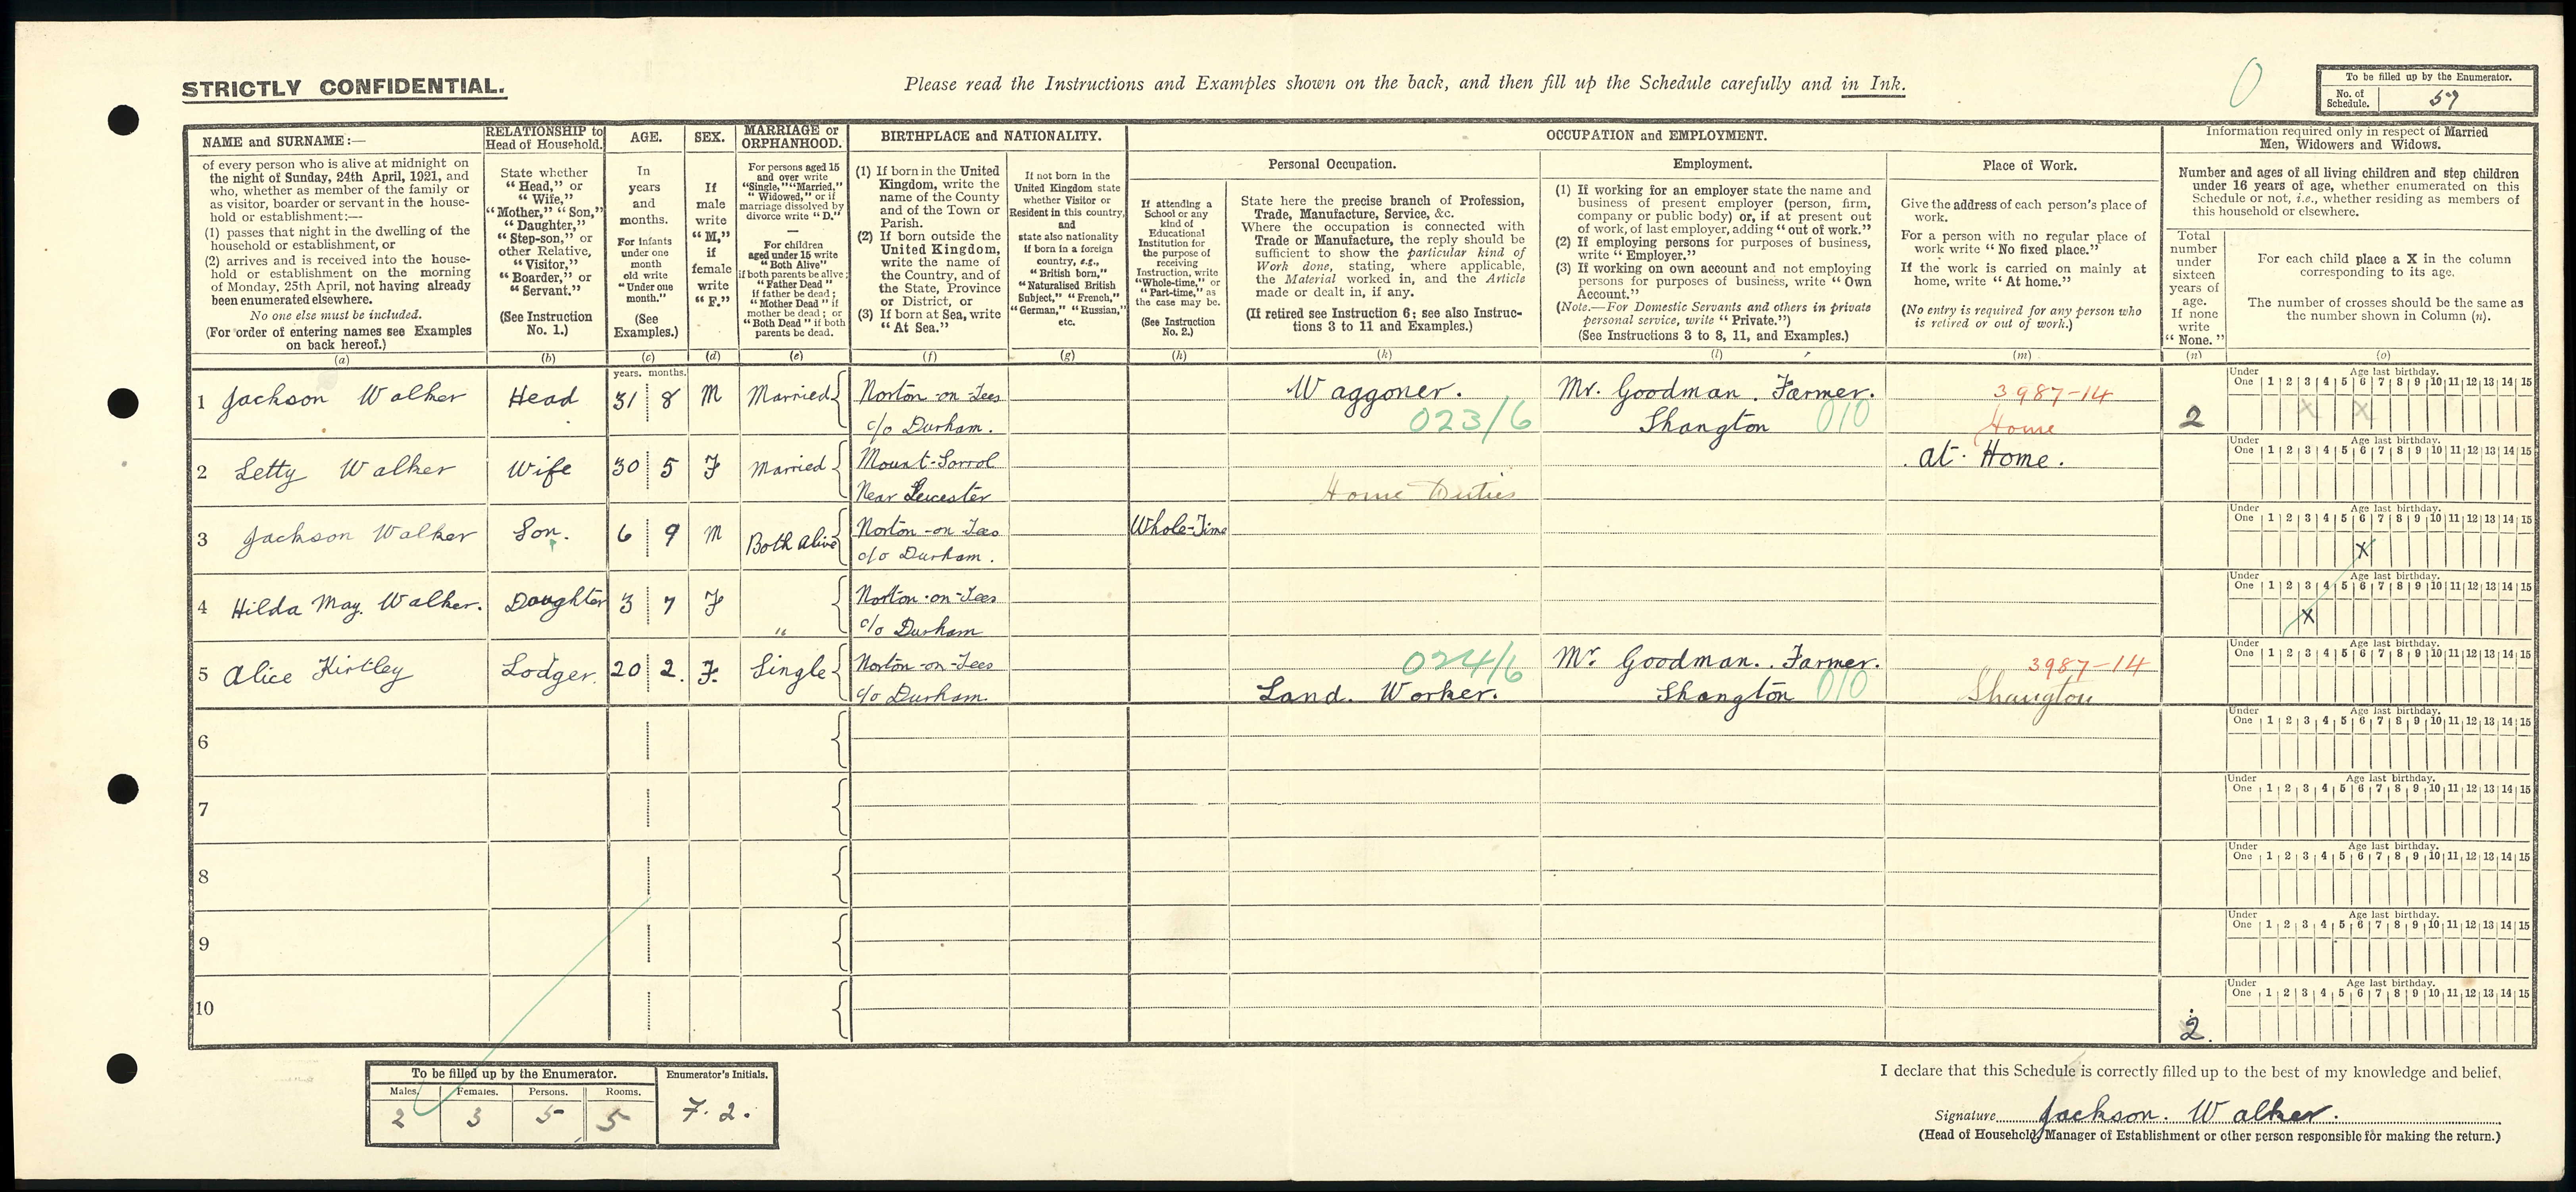 STRICTLY CONFIDENTIAL.
Please read the Instructions and Examples shown on the back, and then fill up the Schedule carefully and in Ink.
0
To be filled up by the Enumerator.
No. of Schedule. 57
NAME and SURNAME:—
of every person who is alive at midnight on
the night of Sunday, 24th April, 1921, and
who, whether as member of the family or
as visitor, boarder or servant in the house-
hold or establishment:—
(1) passes that night in the dwelling of the
household or establishment, or
(2) arrives and is received into the house-
hold or establishment on the morning
of Monday, 25th April, not having already
been enumerated elsewhere.
No one else must be included.
(For order of entering names see Examples
on back hereof.)
(a)
RELATIONSHIP to
Head of Household.
State whether
"Head," or
"Wife,"
"Mother," "Son,"
"Daughter,"
"Step-son," or
other Relative,
"Visitor,"
"Boarder," or
"Servant."
(See Instruction
No. 1.)
(b)
AGE.
In
years
and
months.
For infants
under one
month
old write
"Under one
month."
(See
Examples.)
(c)
SEX.
If
male
write
"M,"
if
female
write
"F."
(d)
MARRIAGE or
ORPHANHOOD.
For persons aged 15
and over write
"Single," "Married,"
"Widowed," or if
marriage dissolved by
divorce write "D."
—
For children
aged under 15 write
"Both Alive"
if both parents be alive;
"Father Dead"
if father be dead;
"Mother Dead" if
mother be dead; or
"Both Dead" if both
parents be dead.
(e)
BIRTHPLACE and NATIONALITY.
(1) If born in the United
Kingdom, write the
name of the County
and of the Town or
Parish.
(2) If born outside the
United Kingdom,
write the name of
the Country, and of
the State, Province
or District, or
(3) If born at Sea, write
"At Sea."
(f)
If not born in the
United Kingdom state
whether Visitor or
Resident in this country,
and
state also nationality
if born in a foreign
country, e.g.,
"British born,"
"Naturalised British
Subject," "French,"
"German," "Russian,"
etc.
(g)
OCCUPATION and EMPLOYMENT.
If attending a
School or any
kind of
Educational
Institution for
the purpose of
receiving
Instruction, write
"Whole-time," or
"Part-time," as
the case may be.
(See Instruction
No. 2.)
(h)
Personal Occupation.
State here the precise branch of Profession,
Trade, Manufacture, Service, &c.
Where the occupation is connected with
Trade or Manufacture, the reply should be
sufficient to show the particular kind of
Work done, stating, where applicable,
the Material worked in, and the Article
made or dealt in, if any.
(If retired see Instruction 6; see also Instruc-
tions 3 to 11 and Examples.)
(k)
Employment.
(1) If working for an employer state the name and
business of present employer (person, firm,
company or public body) or, if at present out
of work, of last employer, adding "out of work."
(2) If employing persons for purposes of business,
write "Employer."
(3) If working on own account and not employing
persons for purposes of business, write "Own
Account."
(Note.—For Domestic Servants and others in private
personal service, write "Private.")
(See Instructions 3 to 8, 11, and Examples.)
(l)
Place of Work.
Give the address of each person's place of
work.
For a person with no regular place of
work write "No fixed place."
If the work is carried on mainly at
home, write "At home."
(No entry is required for any person who
is retired or out of work.)
(m)
Information required only in respect of Married
Men, Widowers and Widows.
Number and ages of all living children and step children
under 16 years of age, whether enumerated on this
Schedule or not, i.e., whether residing as members of
this household or elsewhere.
Total
number
under
sixteen
years of
age.
If none
write
"None."
(n)
For each child place a X in the column
corresponding to its age.
The number of crosses should be the same as
the number shown in Column (n).
(o)
years. months.
Under One 1 2 3 4 5 6 7 8 9 10 11 12 13 14 15 Age last birthday.
1 Jackson Walker Head 31 8 M Married Norton-on-Tees Waggoner. Mr. Goodman. Farmer. 3987-14 X X
c/o Durham. 023/6 Shangton 010 Home 2
Under One 1 2 3 4 5 6 7 8 9 10 11 12 13 14 15 Age last birthday.
2 Letty Walker Wife 30 5 F Married Mount-Sorrol at Home.
Near Leicester Home Duties
Under One 1 2 3 4 5 6 7 8 9 10 11 12 13 14 15 Age last birthday.
3 Jackson Walker Son. 6 9 M Both Alive Norton-on-Tees Whole-Time
c/o Durham. X
Under One 1 2 3 4 5 6 7 8 9 10 11 12 13 14 15 Age last birthday.
4 Hilda May. Walker. Daughter 3 7 F " Norton-on-Tees
c/o Durham X
Under One 1 2 3 4 5 6 7 8 9 10 11 12 13 14 15 Age last birthday.
5 Alice Kirtley Lodger. 20 2. F. Single Norton-on-Tees 024/6 Mr. Goodman. Farmer. 3987-14
c/o Durham. Land. Worker. Shangton 010 Shangton
Under One 1 2 3 4 5 6 7 8 9 10 11 12 13 14 15 Age last birthday.
6
Under One 1 2 3 4 5 6 7 8 9 10 11 12 13 14 15 Age last birthday.
7
Under One 1 2 3 4 5 6 7 8 9 10 11 12 13 14 15 Age last birthday.
8
Under One 1 2 3 4 5 6 7 8 9 10 11 12 13 14 15 Age last birthday.
9
Under One 1 2 3 4 5 6 7 8 9 10 11 12 13 14 15 Age last birthday.
10
2.
To be filled up by the Enumerator. Enumerator's Initials.
Males. Females. Persons. Rooms.
2 3 5 5 F. 2.
I declare that this Schedule is correctly filled up to the best of my knowledge and belief.
Signature Jackson. Walker.
(Head of Household, Manager of Establishment or other person responsible for making the return.)